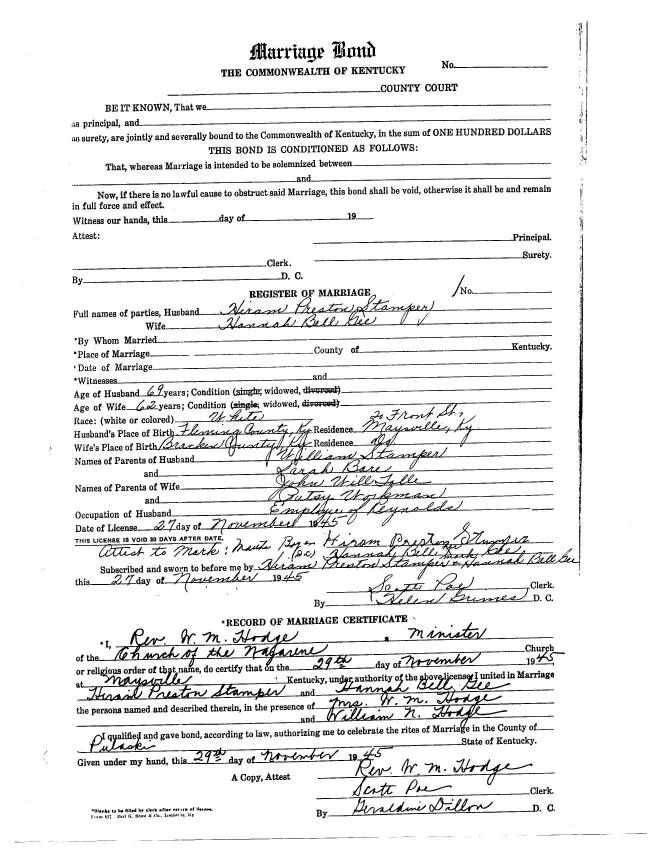 Marriage Bond
THE COMMONWEALTH OF KENTUCKY
No.
COUNTY COURT
BE IT KNOWN, That we
as principal, and
as surety, are jointly and severally bound to the Commonwealth of Kentucky, in the sum of ONE HUNDRED DOLLARS
THIS BOND IS CONDITIONED AS FOLLOWS:
That, whereas Marriage is intended to be solemnized between
and
Now, if there is no lawful cause to obstruct said Marriage, this bond shall be void, otherwise it shall be and remain
in full force and effect.
Witness our hands, this day of 19
Attest:
Principal.
Surety.
Clerk.
By D. C.
REGISTER OF MARRIAGE
No.
Full names of parties, Husband Hiram Preston Stamper
Wife Hannah Bell Gee
*By Whom Married
*Place of Marriage County of Kentucky.
*Date of Marriage
*Witnesses and
Age of Husband 69 years; Condition (single, widowed, divorced)
Age of Wife 62 years; Condition (single, widowed, divorced)
Race: (white or colored) White
Husband's Place of Birth Fleming County, Ky Residence 20 Front St, Maysville, Ky
Wife's Place of Birth Bracken County, Ky Residence Do
Names of Parents of Husband William Stamper
and Sarah Bare
Names of Parents of Wife John Will
and Workman
Occupation of Husband Employee of Reynolds
Date of License 27 day of November 1945
THIS LICENSE IS VOID 30 DAYS AFTER DATE.
Attest to Mark: Hiram Preston Stamper
(DC) Hannah Bell Gee
Subscribed and sworn to before me by Hiram Preston Stamper & Hannah Bell Gee
this 27 day of November 1945
Scott Poe Clerk.
By Helen Grimes D. C.
*RECORD OF MARRIAGE CERTIFICATE
*I, Rev. W. M. Hodge a Minister
of the Church of the Nazarene Church
or religious order of that name, do certify that on the 29th day of November 1945
at Maysville Kentucky, under authority of the above license I united in Marriage
Hiram Preston Stamper and Hannah Bell Gee
the persons named and described therein, in the presence of Mrs. W. M. Hodge
and William N. Hodge
I qualified and gave bond, according to law, authorizing me to celebrate the rites of Marriage in the County of
Pulaski State of Kentucky.
Given under my hand, this 29th day of November 1945
Rev. W. M. Hodge
A Copy, Attest
Scott Poe Clerk.
By Geraldine Dillon D. C.
*Blanks to be filled by clerk after return of license.